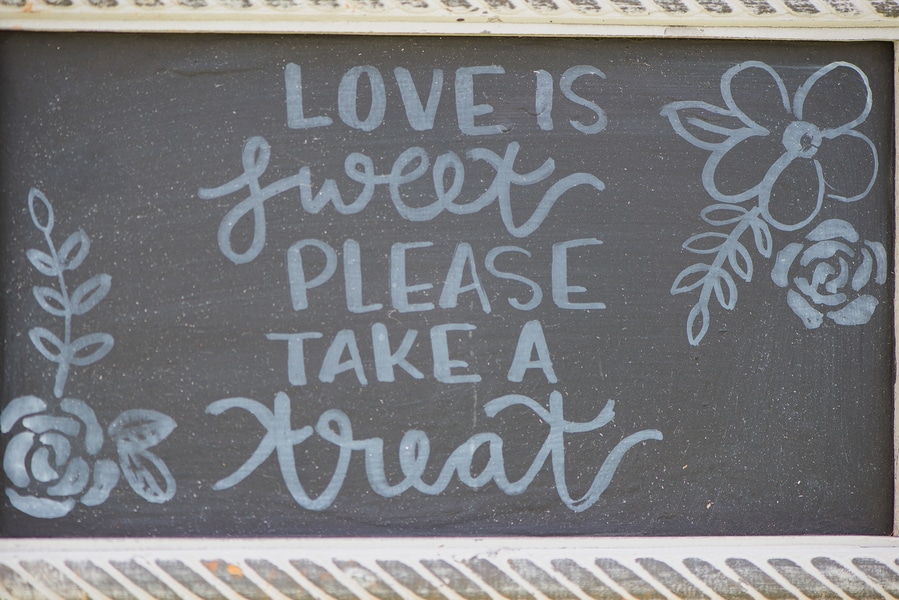 LOVE IS
sweet
PLEASE
TAKE A
treat